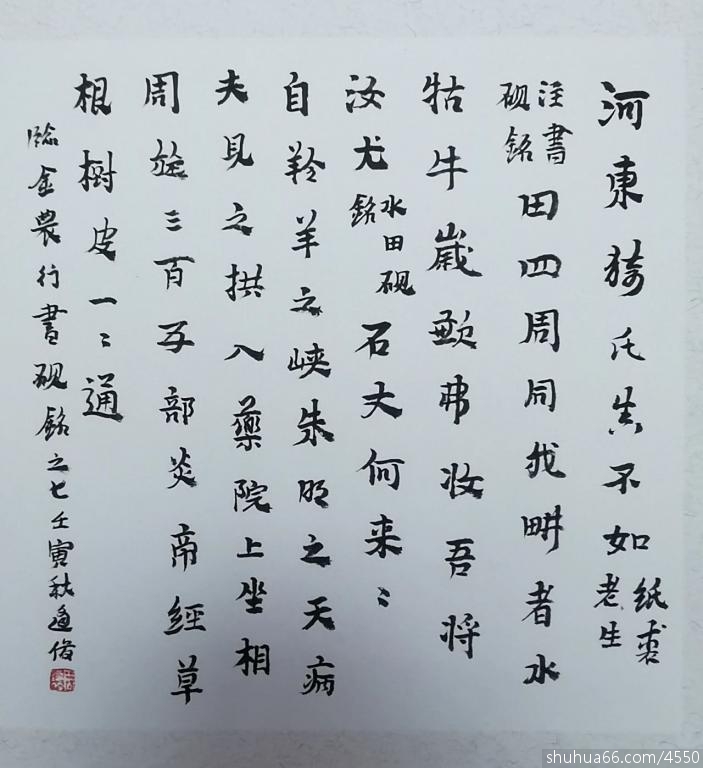 河東猗氏不如紙裘老生
注書砚銘田四周同我畊者水
牯牛歲歉弗收吾将
汝尤水田砚銘石丈何来〻
自羚羊之峡朱明之天病
夫見之拱入藥院上坐相
周旋三百五部炎帝經草
根樹皮一〻通
臨金農行書砚銘之七壬寅秋俊
shuhua66.com/4550